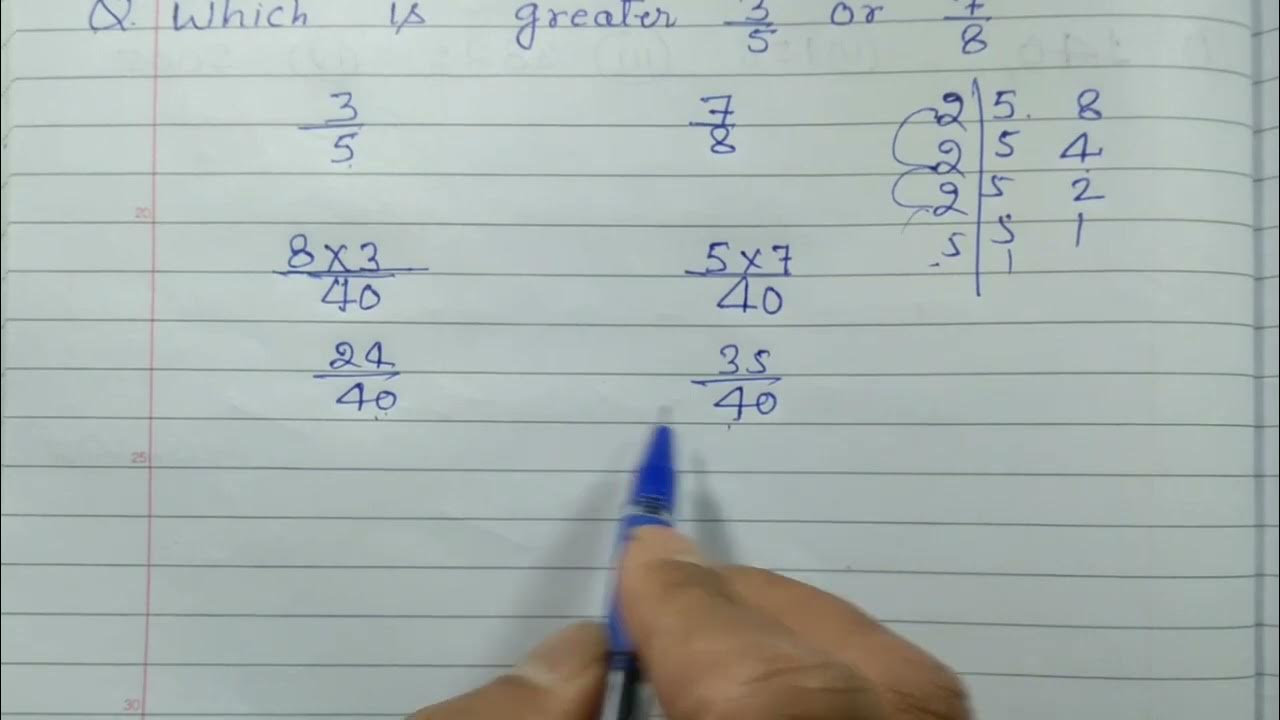 Q. Which is greater 3/5 or 7/8
3/5 7/8
2 | 5. 8
2 | 5 4
2 | 5 2
5 | 5 1
1
8×3/40 5×7/40
24/40 35/40
20
25
30